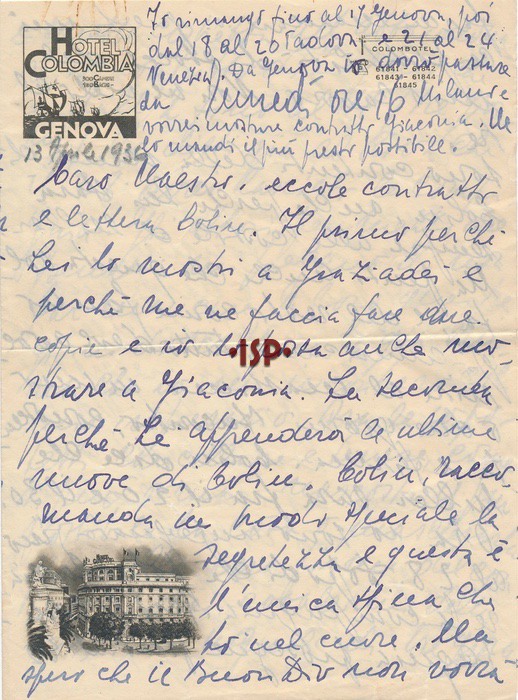 Io rimango fino al 17 Genova, poi
dal 18 al 20 Padova e 21 al 24
Venezia. Da Genova io dovrò passare
da lunedì ore 16 Milano e
vorrei mostrare contratto Giaconia. Me
lo mandi il più presto possibile.
HOTEL
COLOMBIA
200 CAMERE
180 BAGNI
GENOVA
COLOMBOTEL
61841 - 61842
61843 - 61844
61845
13 Aprile 1936
Caro Maestro, eccole contratto
e lettera Colin. Il primo perché
Lei lo mostri a Graziadei e
perché me ne faccia fare due
copie e io lo possa anche mo-
strare a Giaconia. La seconda
perché Lei apprenderà le ultime
nuove di Colin. Colin, racco-
manda in modo speciale la
segretezza e questa è
l'unica spina che
ho nel cuore. Ma
spero che il Buon Dio non vorrà
•ISP•